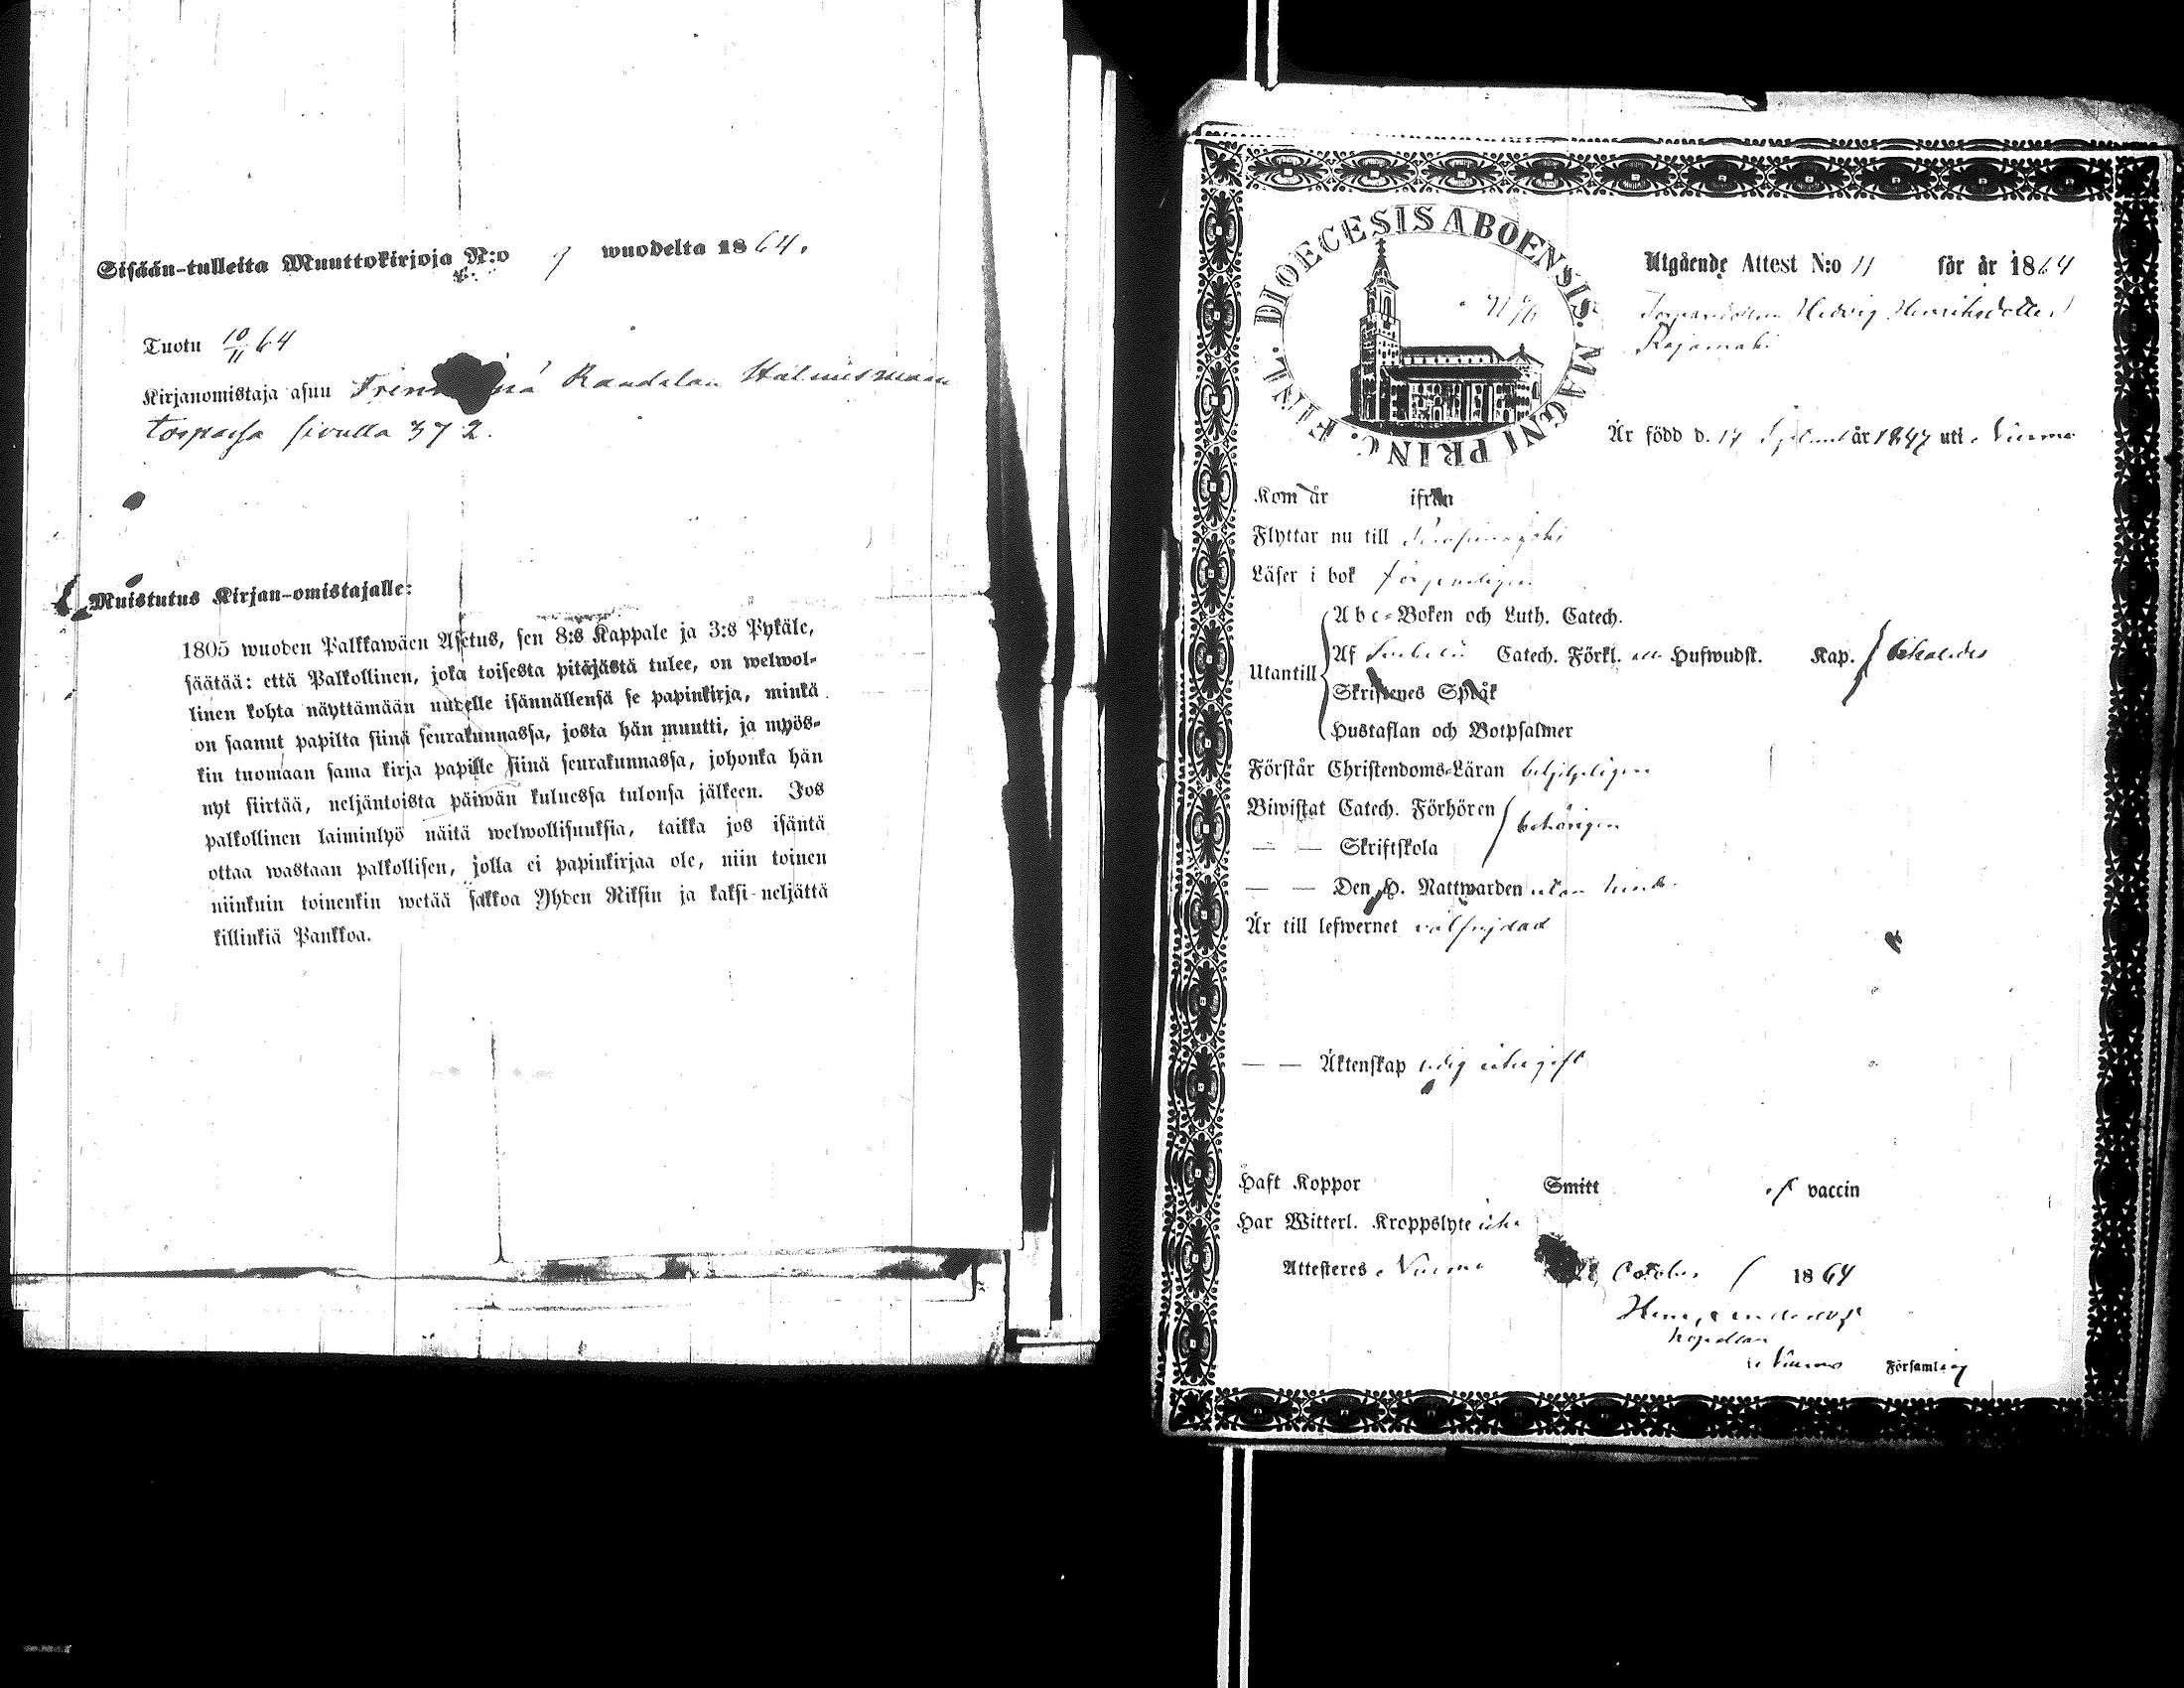 Sisään-tulleita Muuttokirjoja N:o 9 wuodelta 1864.
Tuotu 10/11 64
Kirjanomistaja asuu Raudalan
torpassa sivulla 372.
Muistutus Kirjan-omistajalle:
1805 wuoden Palkkawäen Asetus, sen 8:s Kappale ja 3:s Pykäle,
säätää: että Palkollinen, joka toisesta pitäjästä tulee, on welwol-
linen kohta näyttämään uudelle isännällensä se papinkirja, minkä
on saanut papilta siinä seurakunnassa, josta hän muutti, ja myös-
kin tuomaan sama kirja papille siinä seurakunnassa, johonka hän
nyt siirtää, neljäntoista päiwän kuluessa tulonsa jälkeen. Jos
palkollinen laiminlyö näitä welwollisuuksia, taikka jos isäntä
ottaa wastaan palkollisen, jolla ei papinkirjaa ole, niin toinen
niinkuin toinenkin wetää sakkoa Yhden Riksin ja kaksi-neljättä
killinkiä Pankkoa.
DIOECESIS ABOENSIS. MAGNI PRINC. FINL.
Utgående Attest N:o 11 för år 1864
Torparedottren Hedvig Henriksdotter
Rajamäki
Är född d. 17 Septemb år 1847 uti Nurmo
Kom år ifrån
Flyttar nu till
Läser i bok försvarligen
Utantill
Abc-Boken och Luth. Catech.
Af Catech. Förkl. Hufwudst. Kap.
Skriftenes Språk
Hustaflan och Botpsalmer
Förstår Christendoms-Läran behjelpligen
Biwistat Catech. Förhören behörigen
— — Skriftskola
— — Den H. Nattwarden utan hinder
Är till lefwernet välfrejdad
— — Äktenskap ledig
Haft Koppor Smitt af vaccin
Har Witterl. Kroppslyte icke
Attesteras Nurmo October 1864
Kapellan
i Nurmo Församling